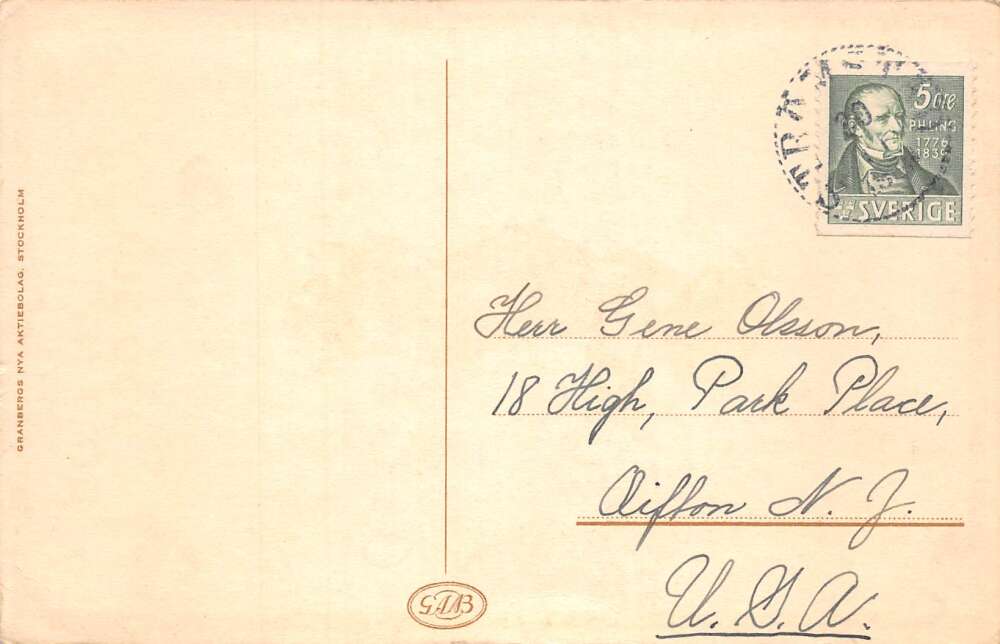 5 öre
P.H.LING
1776
1839
SVERIGE
Herr Gene Olsson,
18 High, Park Place,
N. J.
U. S. A.
GRANBERGS NYA AKTIEBOLAG. STOCKHOLM
GNAB